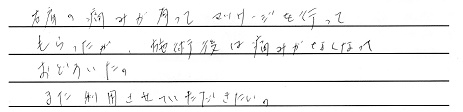 右肩の痛みが有ってマッサージを行って
もらったが、施術後は痛みがなくなって
おどろいた。
また利用させていただきたい。